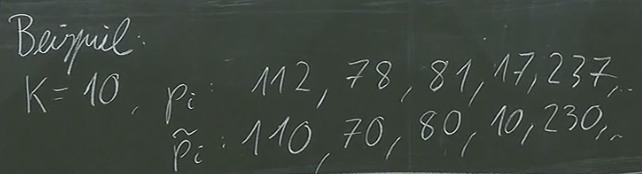 Beispiel:
K = 10, pᵢ: 112, 78, 81, 17, 237,..
p̃ᵢ: 110, 70, 80, 10, 230,..